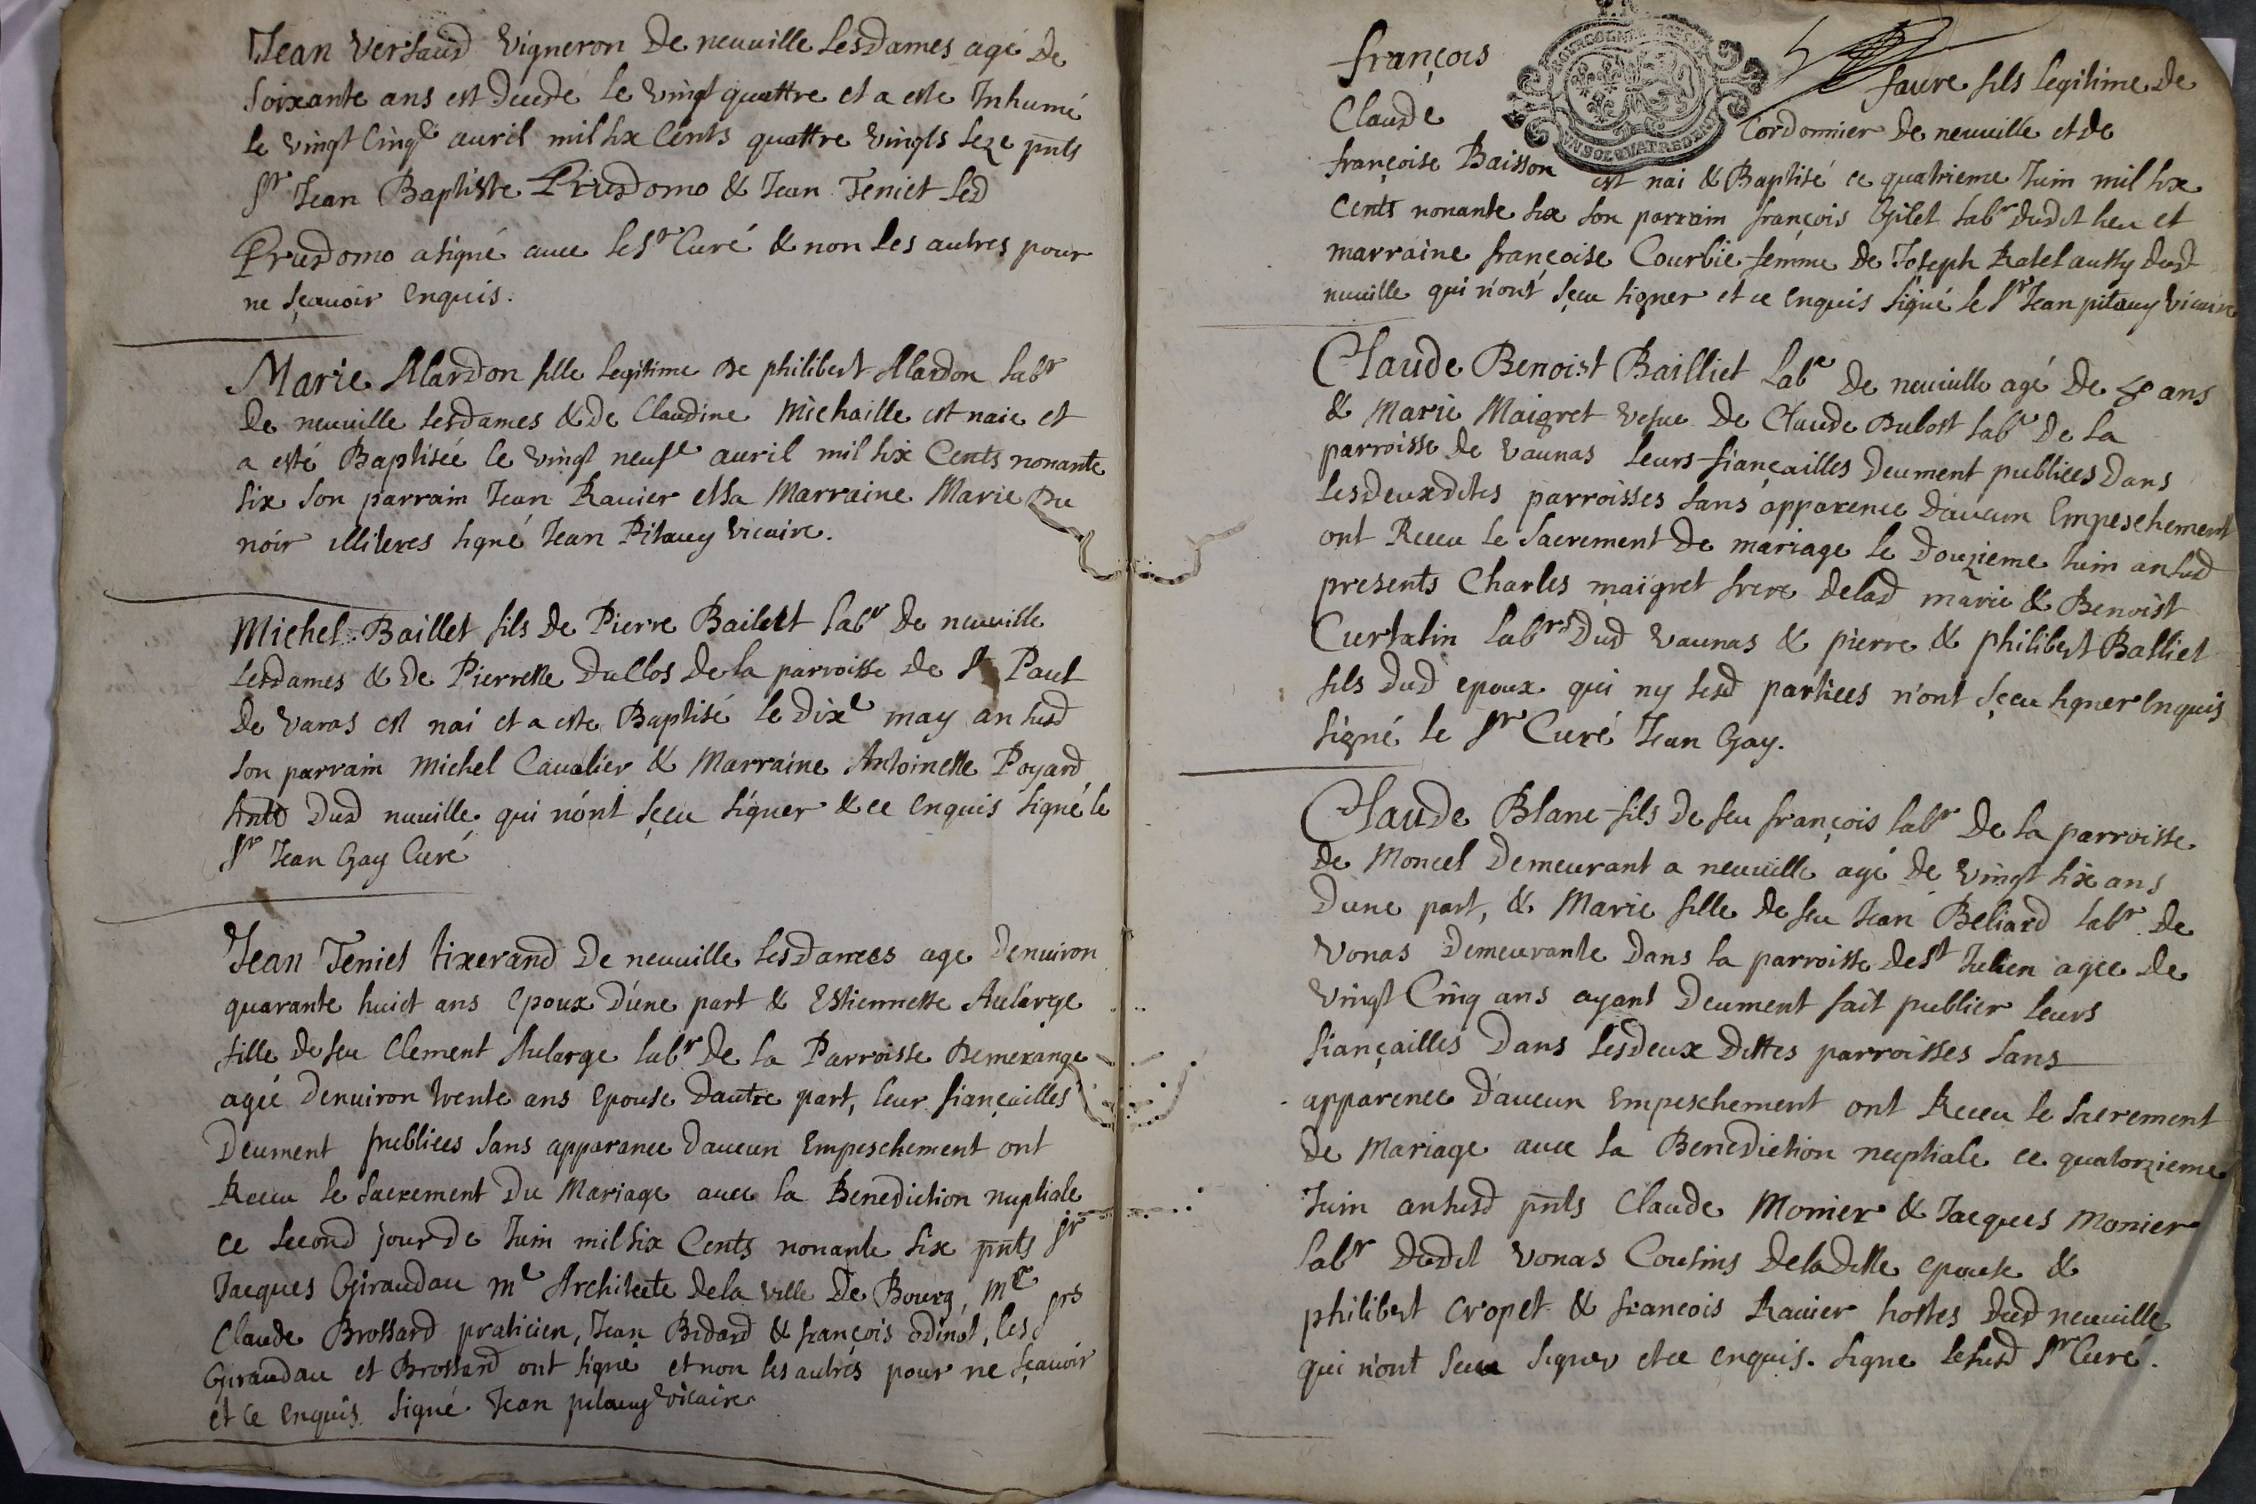 Jean Versaud Vigneron De neuuille Lesdames agé De
soixante ans est Decede le vingt quattre et a este Inhumé
le vingt Cinqe auril mil six Cents quattre vingts seze pnts
Sr Jean Baptiste Prusdomo & Jean Teniet Led
Prusdomo a signé auec le Sr Curé & non les autres pour
ne sçauoir Enquis.
Marie Alardon fille legitime De philibert Alardon labr
De neuuille lesdames & de Claudine Michaille est naie et
a esté Baptiséé le vingt neufe auril mil six Cents nonante
six son parrain Jean Rauier et sa Marraine Marie Du
noir illiteres signé Jean Pitauy vicaire.
Michel Baillet fils de Pierre Bailett labr De neuuille
Lesdames & de Pierrette DuClos De la parroisse de St Paul
De varas est nai et a este Baptisé le Dixe may an susd
son parrain Michel Caualier & Marraine Antoinette Poyard
Dud nuuille qui n'ont sçeu signer & ce Enquis signé le
Sr Jean Gay Curé
Jean Teniet tixerand De neuuille Lesdames age Denuiron
quarante huict ans Epoux D'une part & Estiennette Aularge
fille de feu Clement Aularge labr De la Parroisse Demerange
agée Denuiron trente ans Epouse Dautre part, leur fiançailles
Deument publiees sans apparance Daucun Empeschement ont
Receu le sacrement Du Mariage auec la Benediction nuptiale
ce second jour de Juin mil six Cents nonante six pnts Sr
Jacques Giraudau me Architecte de la ville De Bourg, me
Claude Brossard praticien, Jean Bidard & françois odinet, les Srs
Giraudau et Brossard ont signé et non les autres pour ne sçauoir
et ce Enquis signé Jean pitauy vicaire
françois faure fils legitime de
Claude Cordonnier de neuuille et de
françoise Baisson est nai & Baptisé ce quatrieme Juin mil six
Cents nonante six son parrain françois Gilet labr dudit lieu et
marraine françoise Courbie femme de Joseph Ratet aussy dud
nuuille qui n'ont sçeu signer et ce Enquis signé le Sr Jean pitauy vicaire
Claude Benoist Bailliet labr De neuuille agé De 40 ans
& Marie Maigret vefue De Claude Dubost labr De la
parroisse de Vaunas leurs fiançailles Deument publiees Dans
les deux dites parroisses sans apparence Daucun Empeschement
ont Receu le Sacrement De mariage le Douzieme Juin an susd
presents Charles maigret frere delad marie & Benoist
Curtatin labrs Dud Vaunas & pierre & philibert Balliet
fils Dud epoux qui ny lesd partiees n'ont sçeu signer Enquis
signé le Sr Curé Jean Gay.
Claude Blanc fils De feu françois labr De la parroisse
De Moncel Demeurant a neuuille agé De vingt six ans
Dune part, & Marie fille de feu Jean Beliard labr De
Vonas Demeurante Dans la parroisse De St Julien agee De
vingt Cinq ans ayant Deument fait publier leurs
fiançailles Dans les deux Dittes parroisses sans
apparence D'aucun Empeschement ont Receu le sacrement
De Mariage auec la Benediction nuptiale ce quatorzieme
Juin an susd pnts Claude Monier & Jacques Monier
labr Dudit Vonas Cousins De la ditte epouse &
philibert Cropet & francois Rauier hostes Dud neuuille
qui n'ont sceu signer et ce enquis. signe le susd Sr Curé.